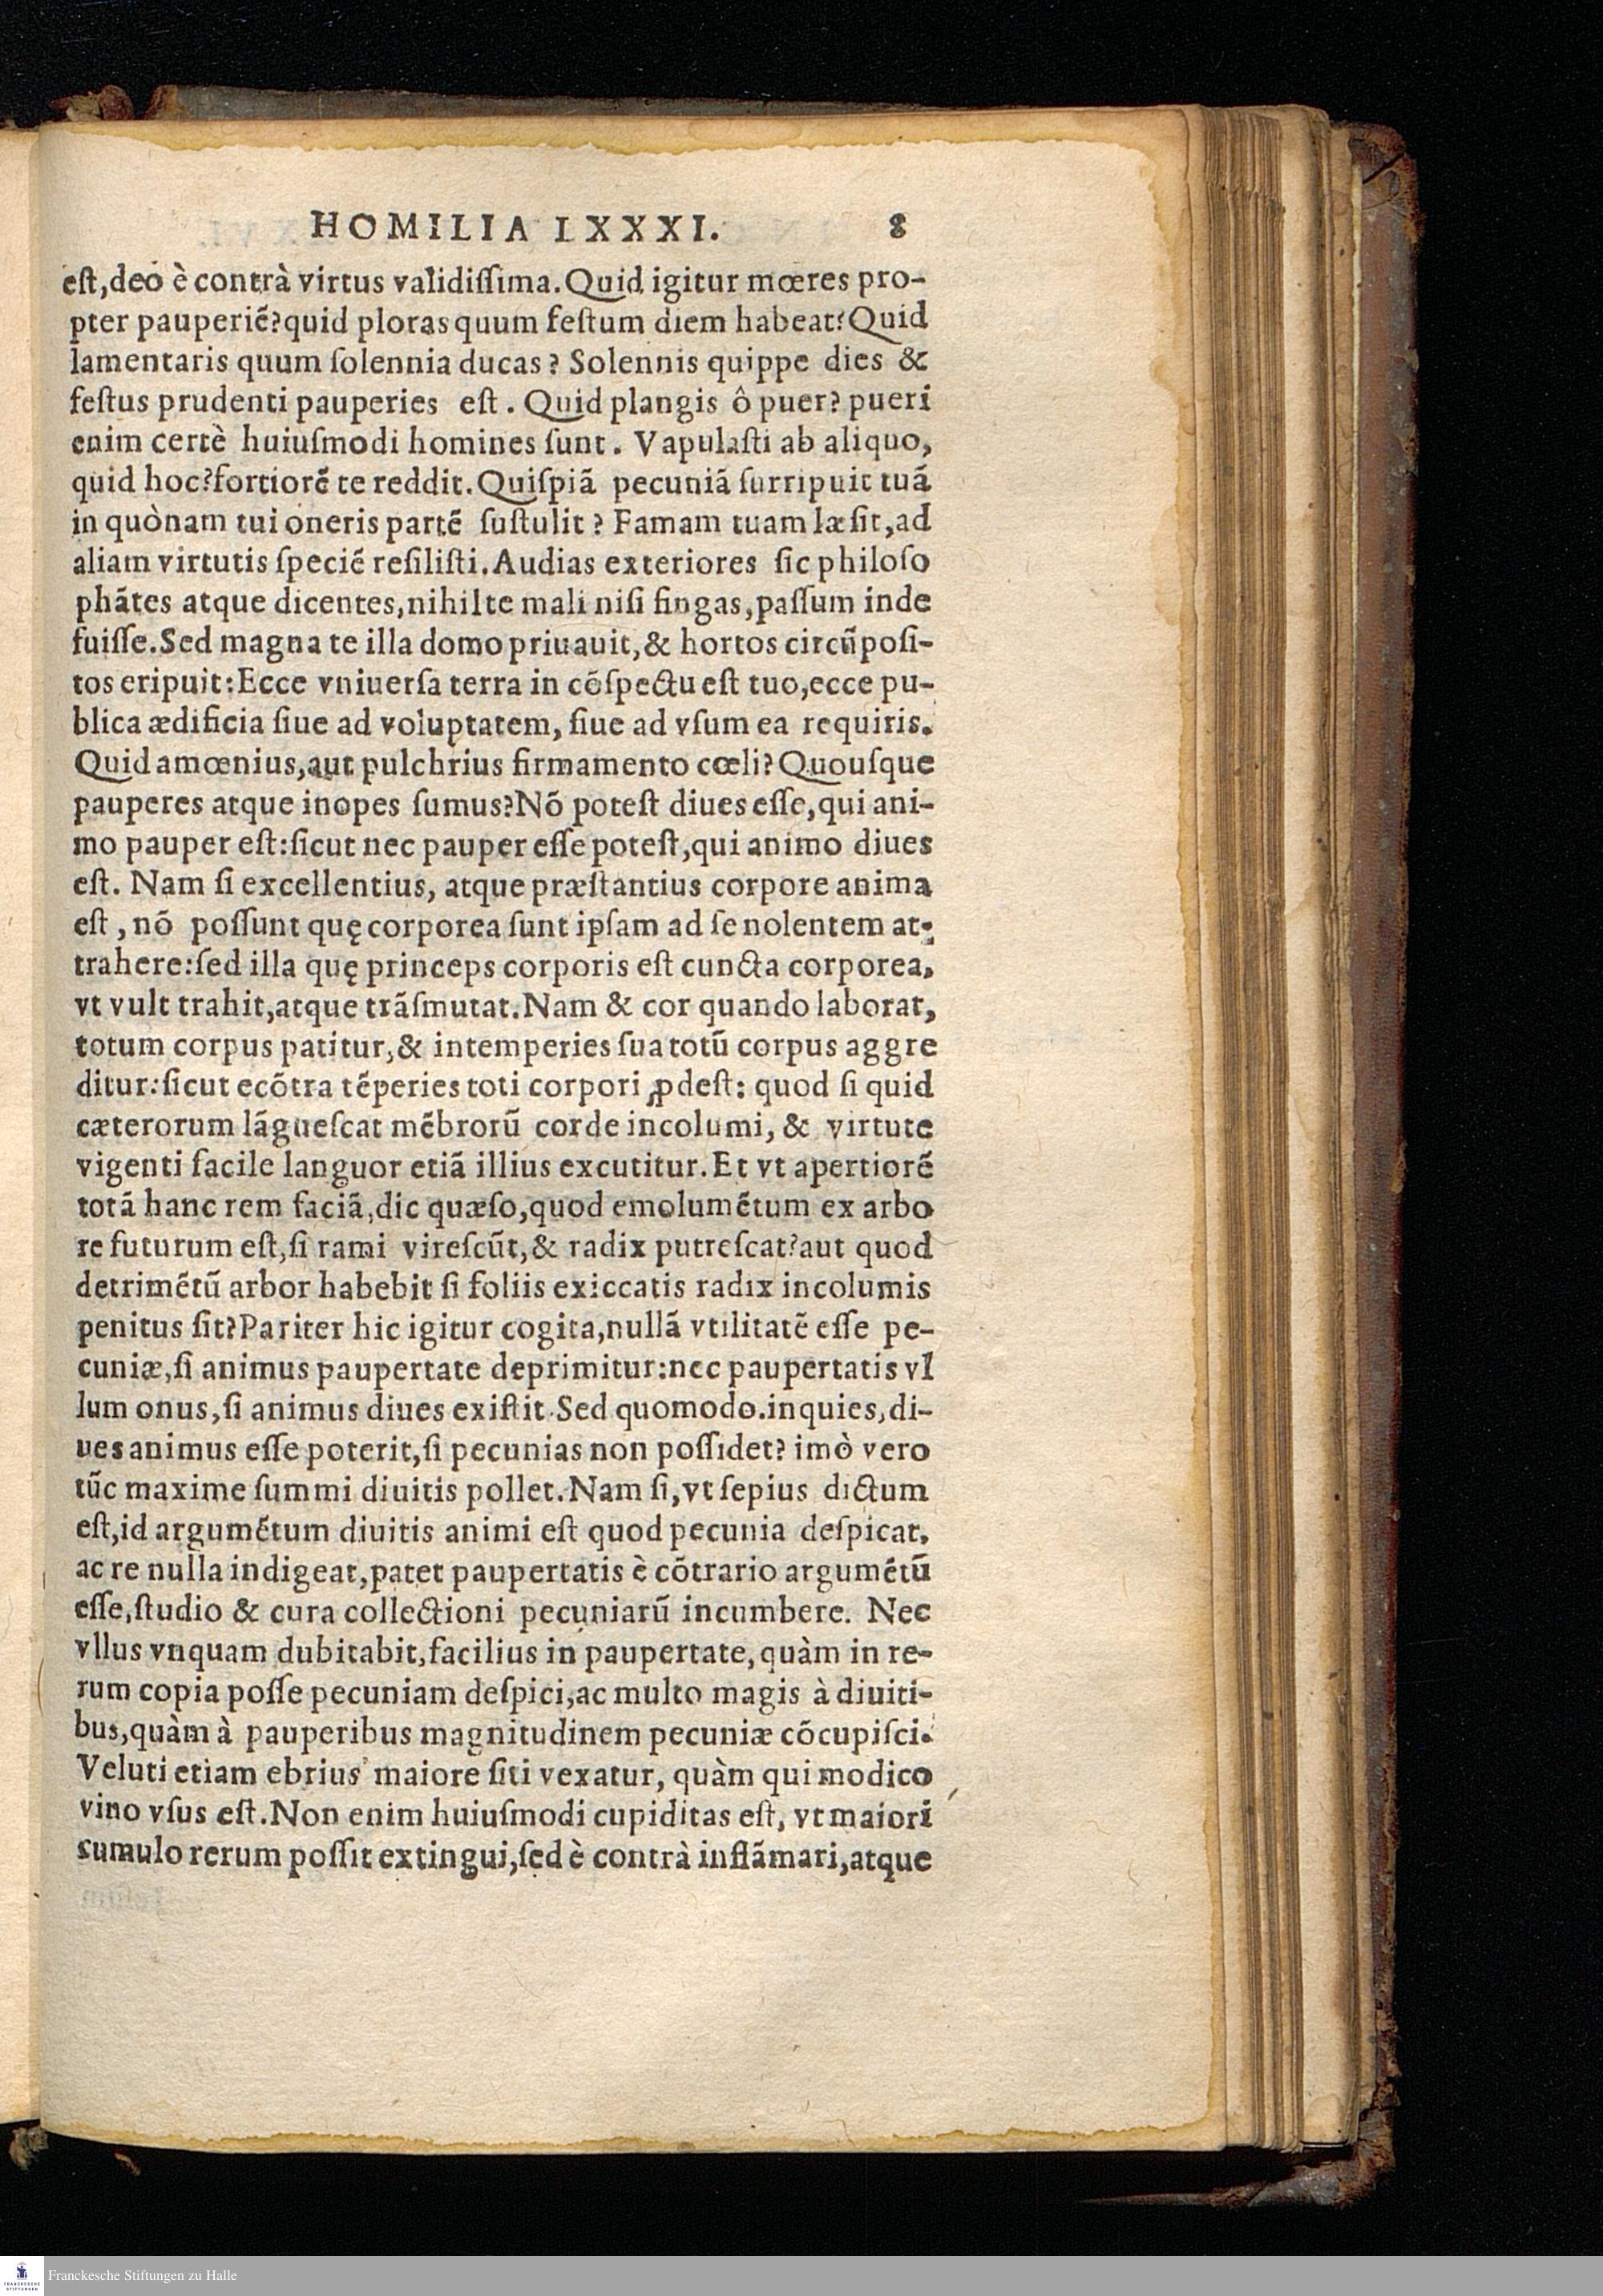 HOMILIA LXXXI. 8
est,deo è contrà virtus validiſſima.Quid igitur mœres pro-
pter pauperiẽ?quid ploras quum feſtum diem habeat?Quid
lamentaris quum ſolennia ducas? Solennis quippe dies &
feſtus prudenti pauperies est. Quid plangis ô puer? pueri
enim certè huiuſmodi homines ſunt. Vapulaſti ab aliquo,
quid hoc?fortiorẽ te reddit.Quiſpiã pecuniã ſurripuit tuã
in quònam tui oneris partẽ ſuſtulit? Famam tuam læſit,ad
aliam virtutis ſpeciẽ reſiliſti.Audias exteriores ſic philoſo
phãtes atque dicentes,nihil te mali niſi fingas,paſſum inde
fuiſſe.Sed magna te illa domo priuauit,& hortos circũpoſi-
tos eripuit:Ecce vniuerſa terra in cõſpectu eſt tuo,ecce pu-
blica ædificia ſiue ad voluptatem, ſiue ad vſum ea requiris.
Quid amœnius,aut pulchrius firmamento cœli?Quouſque
pauperes atque inopes ſumus?Nõ poteſt diues eſſe,qui ani-
mo pauper eſt:ſicut nec pauper eſſe poteſt,qui animo diues
eſt. Nam ſi excellentius, atque præſtantius corpore anima
eſt, nõ poſſunt quę corporea ſunt ipſam ad ſe nolentem at-
trahere:ſed illa quę princeps corporis eſt cuncta corporea,
vt vult trahit,atque trãſmutat.Nam & cor quando laborat,
totum corpus patitur,& intemperies ſua totũ corpus aggre
ditur:ſicut ecõtra tẽperies toti corpori ꝓdeſt: quod ſi quid
cæterorum lãgueſcat mẽbrorũ corde incolumi, & virtute
vigenti facile languor etiã illius excutitur.Et vt apertiorẽ
totã hanc rem faciã,dic quæſo,quod emolumẽtum ex arbo
re futurum eſt,ſi rami vireſcũt,& radix putreſcat?aut quod
detrimẽtũ arbor habebit ſi foliis exiccatis radix incolumis
penitus ſit?Pariter hic igitur cogita,nullã vtilitatẽ eſſe pe-
cuniæ,ſi animus paupertate deprimitur:nec paupertatis vl
lum onus,ſi animus diues exiſtit.Sed quomodo.inquies,di-
ues animus eſſe poterit,ſi pecunias non poſſidet? imò vero
tũc maxime ſummi diuitis pollet.Nam ſi,vt ſepius dictum
eſt,id argumẽtum diuitis animi eſt quod pecunia deſpicat,
ac re nulla indigeat,patet paupertatis è cõtrario argumẽtũ
eſſe,ſtudio & cura collectioni pecuniarũ incumbere. Nec
vllus vnquam dubitabit,facilius in paupertate,quàm in re-
rum copia poſſe pecuniam deſpici,ac multo magis à diuiti-
bus,quàm à pauperibus magnitudinem pecuniæ cõcupiſci.
Veluti etiam ebrius maiore ſiti vexatur, quàm qui modico
vino vſus eſt.Non enim huiuſmodi cupiditas eſt, vt maiori
cumulo rerum poſſit extingui,ſed è contrà inflãmari,atque
FRANCKESCHE STIFTUNGEN
Franckesche Stiftungen zu Halle